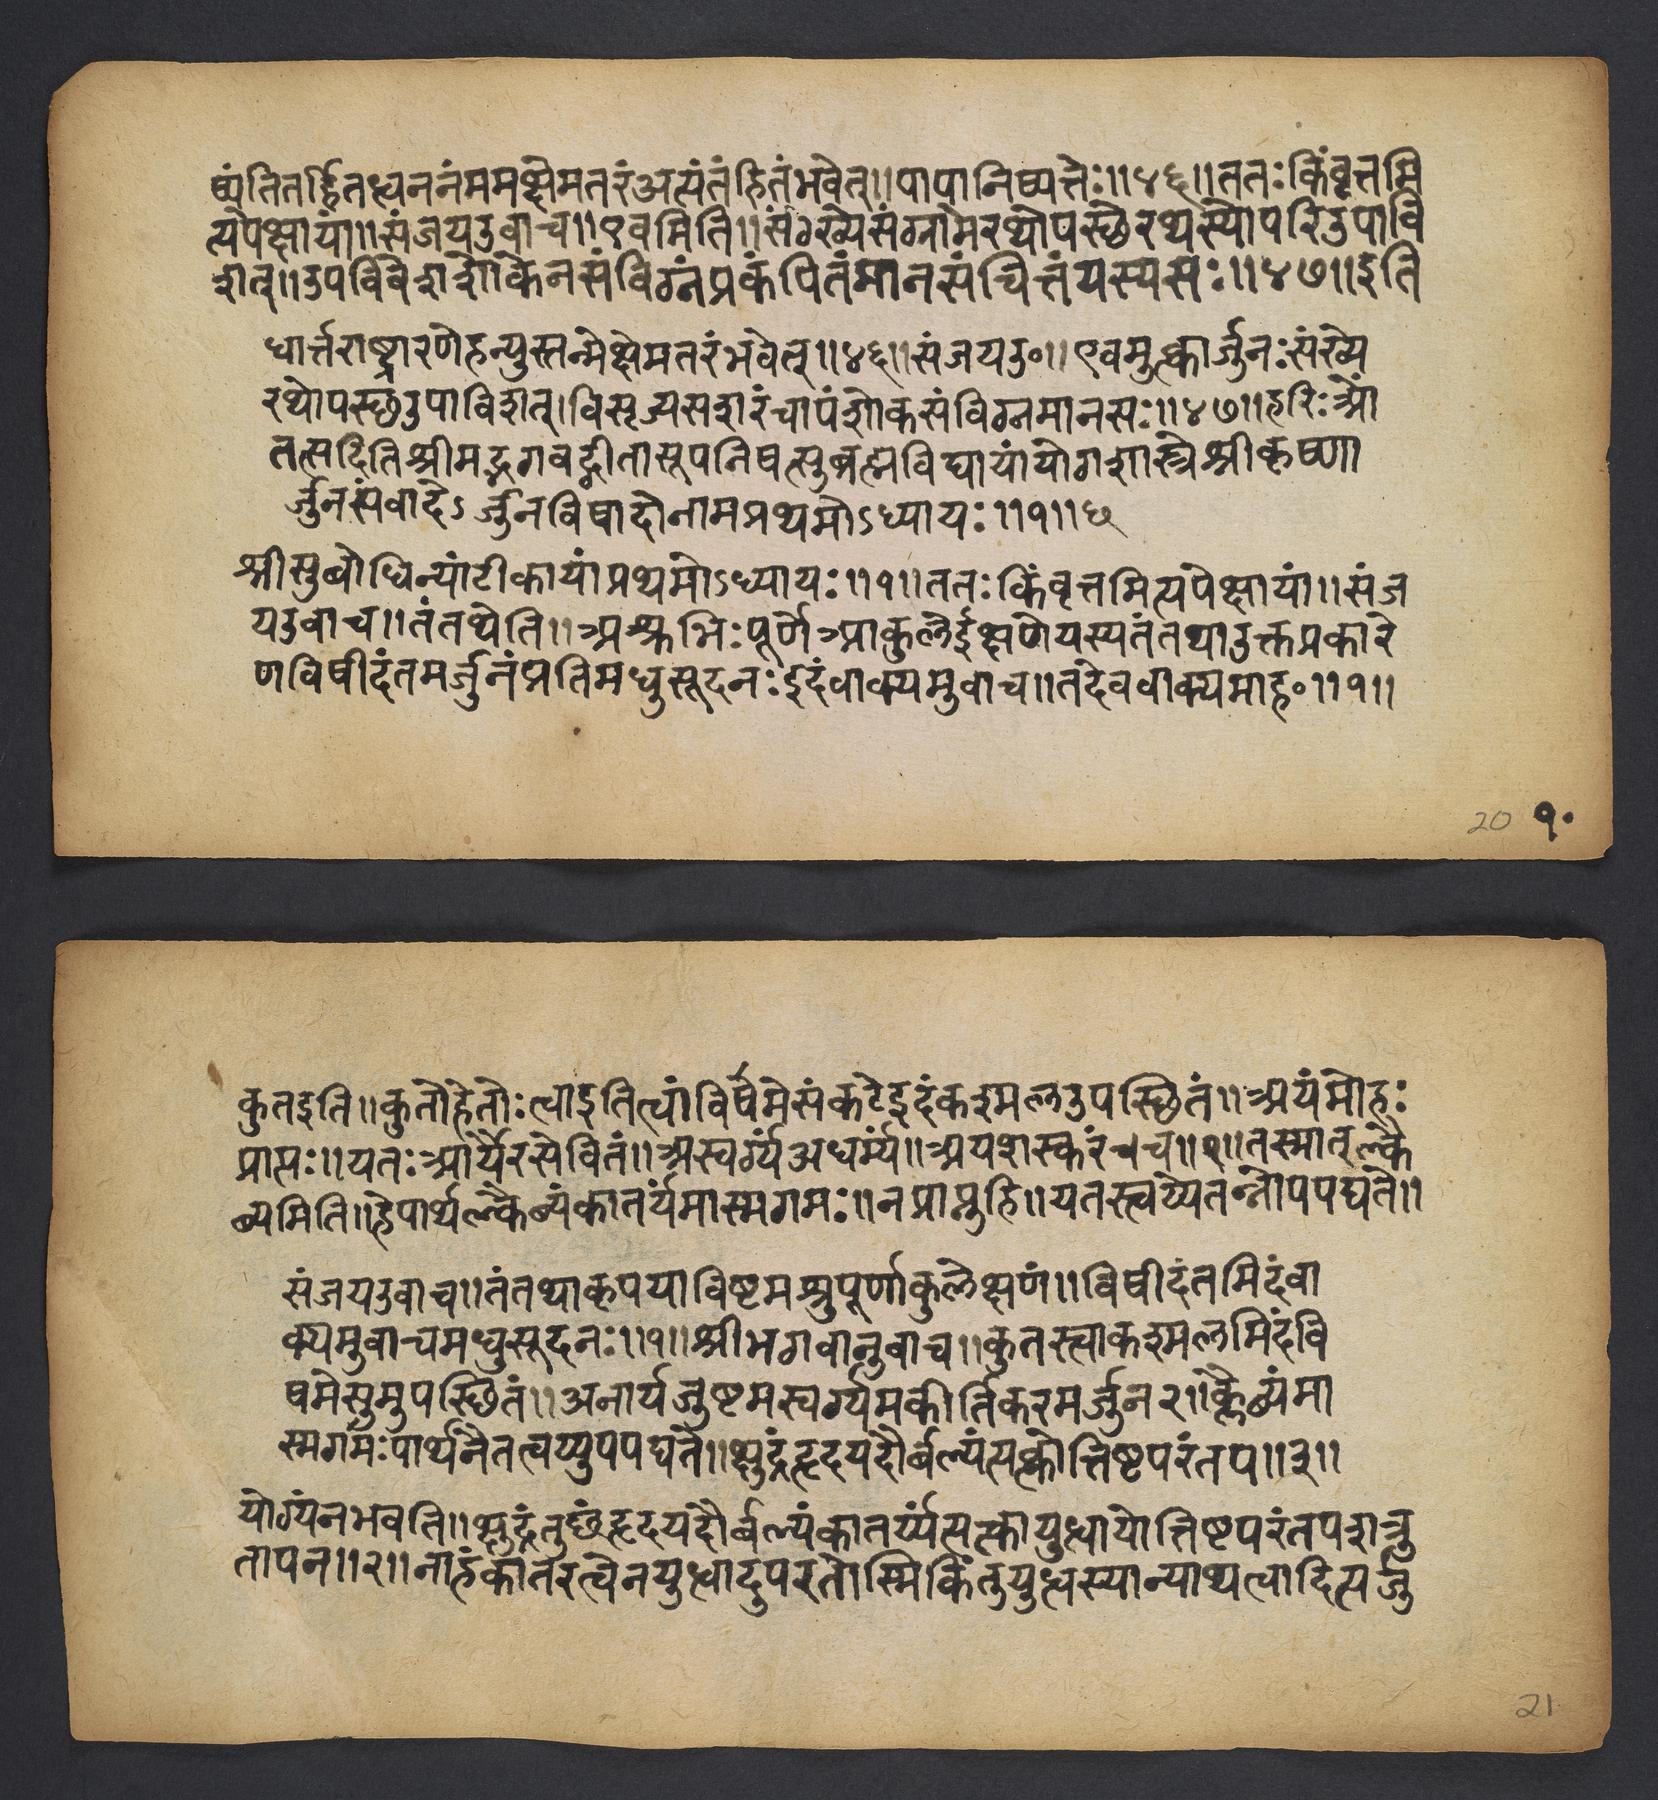 ष्यंतितर्हितध्वननंममक्षेमतरंअत्यंतंहितंभवेत्॥पापानिष्पत्तेः॥४६॥ततःकिंवृत्तमि
त्यपेक्षायां॥संजयउवाच॥एवमिति॥संग्ख्येसंग्रामेरथोपस्छेरथस्योपरिउपावि
शत्॥उपविवेशशोकेनसंविग्नंप्रकंपितंमानसंचित्तंयस्यसः॥४७॥इति
धार्त्तराष्ट्रारणेहन्युस्तन्मेक्षेमतरंभवेत्॥४६॥संजयउ॰॥एवमुत्कार्जुनःसंख्ये
रथोपस्छउपाविशत्।विसृज्यसशरंचापंशोकसंविग्नमानसः॥४७॥हरिःओं
तत्सदितिश्रीमद्भगवद्गीतासूपनिषत्सुब्रह्मविद्यायांयोगशास्त्रेश्रीकृष्णा
र्जुनसंवादेऽर्जुनविषादोनामप्रथमोऽध्यायः॥१॥छ
श्रीसुबोधिन्यांटीकायांप्रथमोऽध्यायः॥१॥ततःकिंवृत्तमित्यपेक्षायां॥संज
यउवाच॥तंतथेति॥अश्रुभिःपूर्णेआकुलेईक्षणेयस्यतंतथाउक्तप्रकारे
णविषीदंतमर्जुनंप्रतिमधुसूदनःइदंवाक्यमुवाच॥तदेववाक्यमाह॰॥१॥
20 १०
कुतइति॥कुतोहेतोःत्वाइतित्वांविषमेसंकटेइदंकश्मलउपस्छितं॥अयंमोहः
प्राप्तः॥यतःआर्यैरसेवितं॥अस्वर्ग्यंअधर्म्यं॥अयशस्करंचच॥२॥तस्मात्ल्कै
ब्यमिति॥हेपार्थल्कैब्यंकातर्यंमास्मगमः॥नप्राप्नुहि॥यतस्त्वय्येतन्नोपपद्यते॥
संजयउवाच॥तंतथाकृपयाविष्टमश्रुपूर्णाकुलेक्षणं॥विषीदंतमिदंवा
क्यमुवाचमधुसूदनः॥१॥श्रीभगवानुवाच॥कुतस्त्वाकश्मलमिदंवि
षमेसुमुपस्छितं॥अनार्यजुष्टमस्वर्ग्यमकीर्तिकरमर्जुन२॥क्लैब्यंमा
स्मगमःपार्थनैतत्वय्युपपद्यते॥क्षुद्रंहृदयदौर्बल्यंत्यत्कोत्तिष्टपरंतप॥३॥
योग्यंनभवति॥क्षुद्रंतुछंहृदयदौर्बल्यंकातर्य्यंत्यत्कायुध्वायोत्तिष्टपरंतपशत्रु
तापन॥२॥नाहंकातरत्वेनयुध्वादुपरतोस्मिकिंतुयुध्वस्यान्याथ्यत्वादित्यर्जु
21